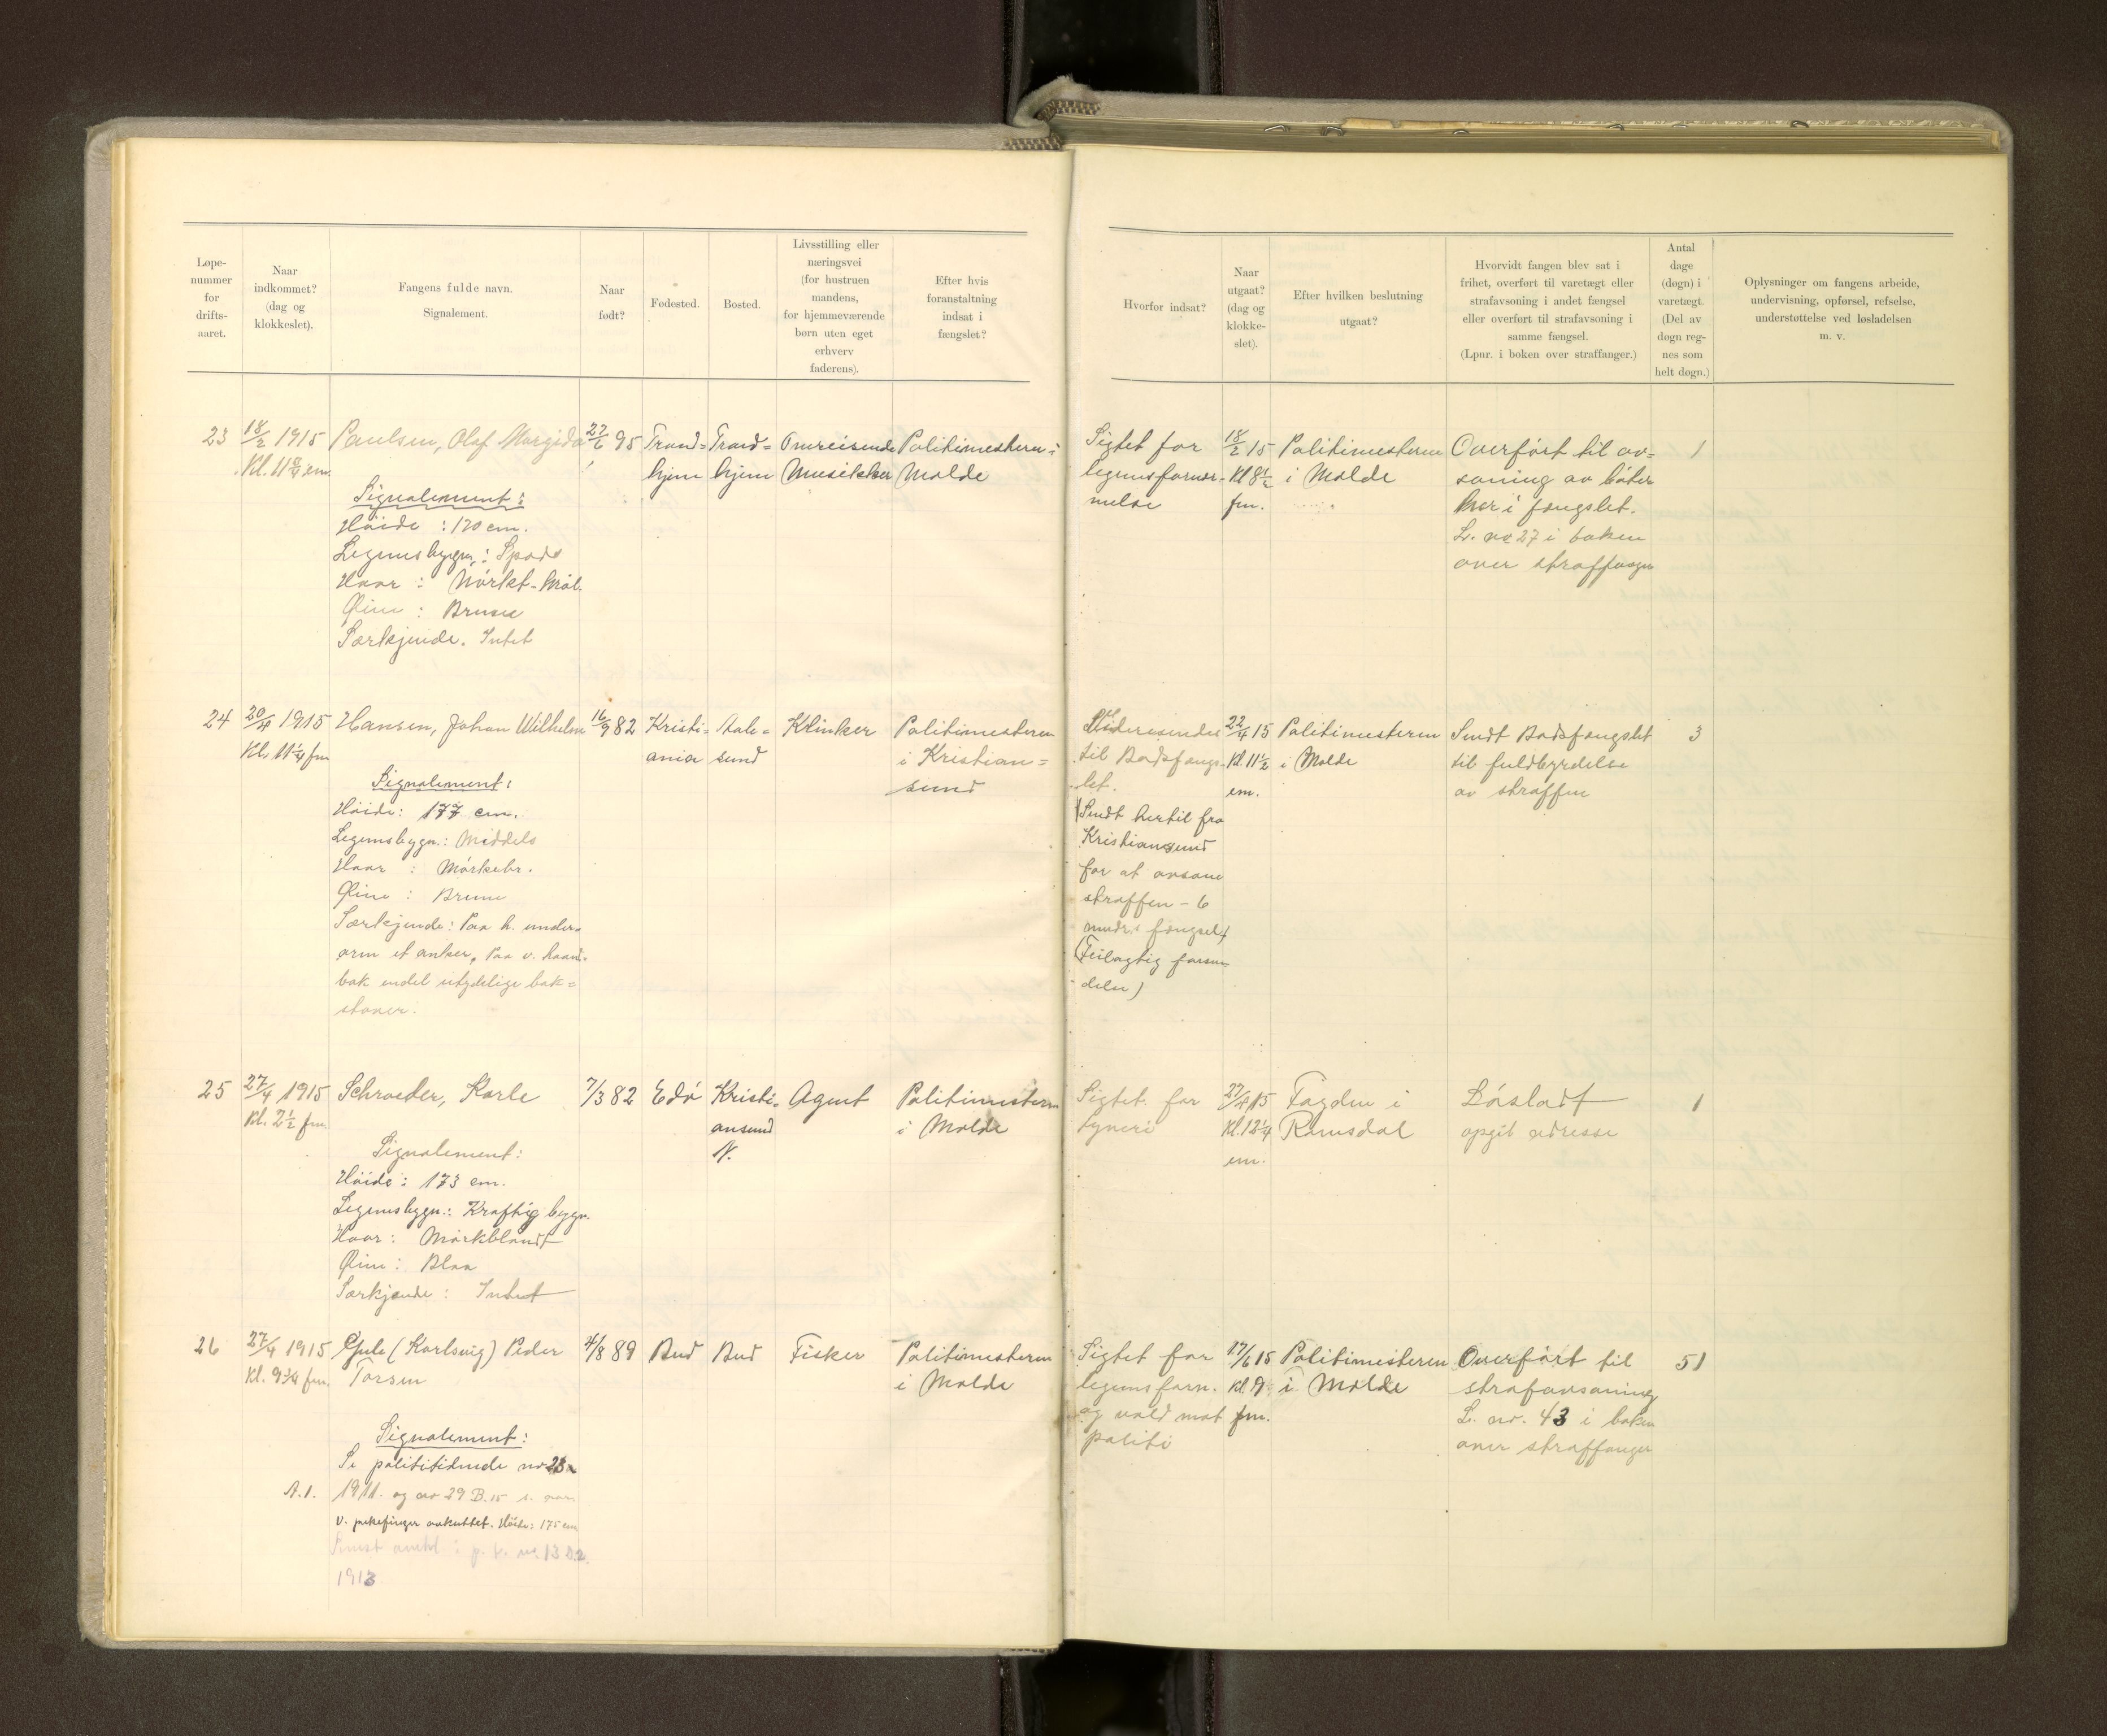 Løpe-
nummer
for
drifts-
aaret.
Naar
indkommet?
(dag og
klokkeslet).
Fangens fulde navn.
Signalement.
Naar
født?
Fødested.
Bosted.
Livsstilling eller
næringsvei
(for hustruen
mandens,
for hjemmeværende
børn uten eget
erhverv
faderens).
Efter hvis
foranstaltning
indsat i
fængslet?
Hvorfor indsat?
Naar
utgaat?
(dag og
klokke-
slet).
Efter hvilken beslutning
utgaat?
Hvorvidt fangen blev sat i
frihet, overført til varetægt eller
strafavsoning i andet fængsel
eller overført til strafavsoning i
samme fængsel.
(Lpnr. i boken over straffanger.)
Antal
dage
(døgn) i
varetægt.
(Del av
døgn reg-
nes som
helt døgn.)
Oplysninger om fangens arbeide,
undervisning, opførsel, refselse,
understøttelse ved løsladelsen
m. v.
23
18/2 1915
Kl. 11 3/4 em.
Paulsen, Olaf
Signalement:
Høide : 170 cm.
Legemsbygn.: Spæd
Haar :
Øine : Brune
Særkjende. Intet
95
Trond=
hjem
Trond=
hjem
Omreisende
Musikker
Politimesteren i
Molde
Sigtet for
legemsfornær-
melse
18/2 15
Kl 8 1/2
fm.
Politimesteren
i Molde
Overført til av=
soning av bøter
her i fængslet.
L. nr 27 i boken
over straffanger
1
24
20/4 1915
Kl. 11 1/4 fm
Hansen, Johan Wilhelm
Signalement:
Høide: 177 cm.
Legemsbygn.: Middels
Haar : Mørkebr.
Øine : Brune
Særkjende: Paa h. under-
arm et anker, Paa v. haand-
bak endel utydelige bok=
staver.
16/9 82
Kristi=
ania
Aale=
sund
Klinker
Politimesteren
i Kristian=
sund
til Bodsfængs-
let.
(Sendt hertil fra
Kristiansund
for at avsone
straffen - 6
mndr. fængsel)
(Feilagtig forsen-
delse)
22/4 15
Kl. 11 1/2
em.
Politimesteren
i Molde
Sendt Bodsfængslet
til fuldbyrdelse
av straffen
3
25
27/4 1915
Kl. 2 1/2 fm.
Schrøder, Karle
Signalement:
Høide: 173 cm.
Legemsbygn.: Kraftig bygn.
Haar: Mørkblondt
Øine: Blaa
Særkjende: Intet
7/3 82
Edø
Kristi-
ansund
N.
Agent
Politimesteren
i Molde
Sigtet for
tyveri
27/4 15
Kl. 12 1/4
em.
Fogden i
Romsdal
Løslatt
opgit adresse
1
26
27/4 1915
Kl. 9 3/4 fm.
Gule (Karlsvig) Peder
Torsen
Signalement:
Se polititidende nr 23
A.1. 1911. og nr 29 B. 15
v. pekefinger avkuttet. Høide: 175 cm
i p. t. nr. 13 D.2.
1913
4/8 89
Bud
Bud
Fisker
Politimesteren
i Molde
Sigtet for
legemsforn.
og vold mot
politi
17/6 15
Kl. 9
fm.
Politimesteren
i Molde
Overført til
strafavsoning
L. nr. 43 i boken
over straffanger
51